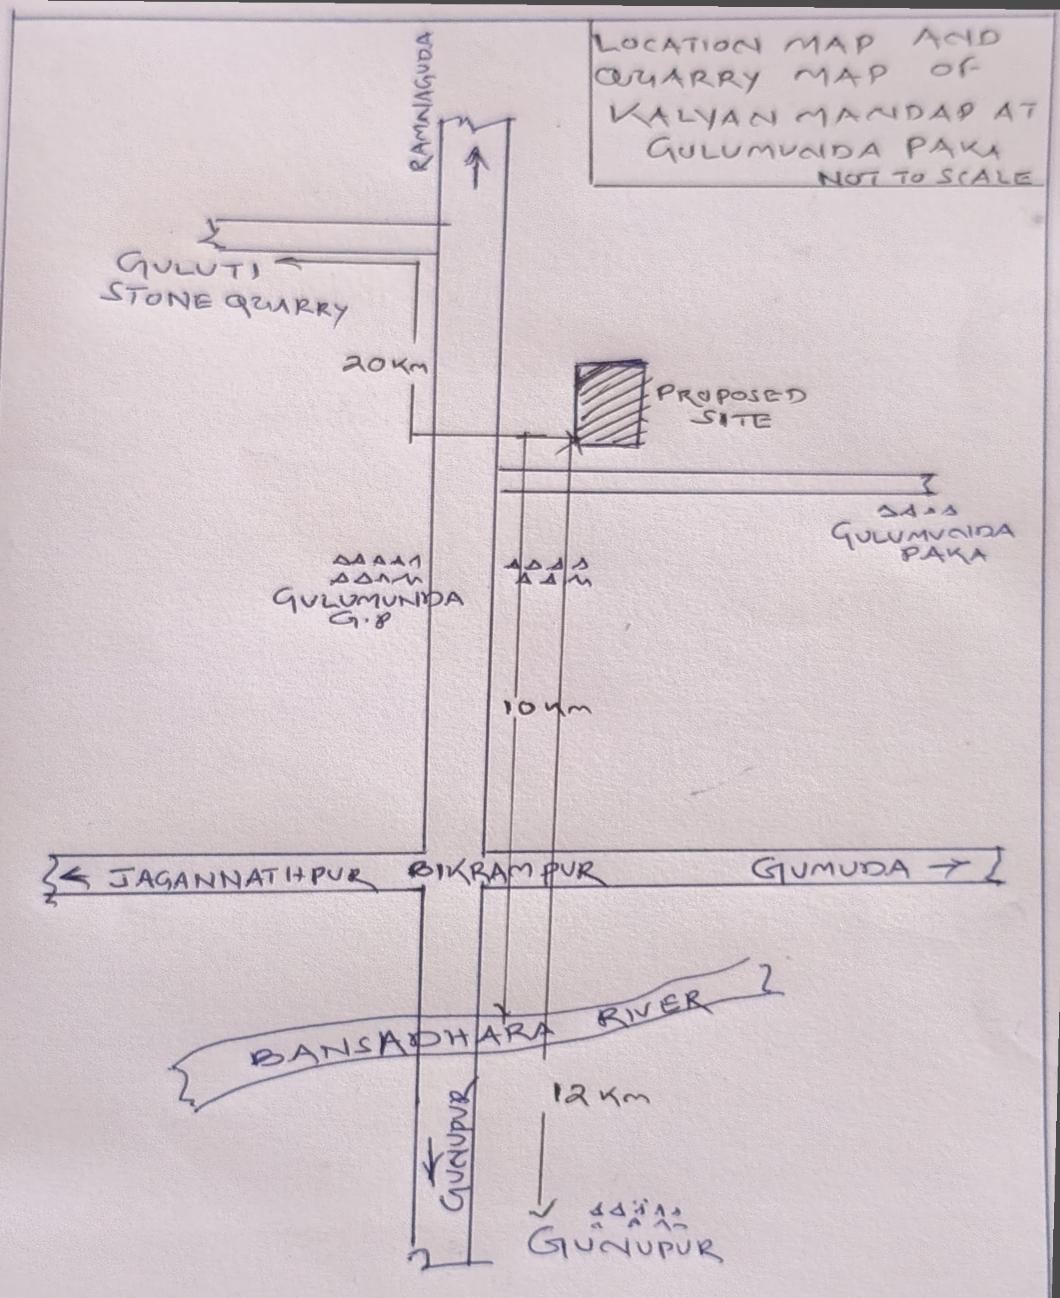 LOCATION MAP AND
QUARRY MAP OF
KALYAN MANDAP AT
GULUMUNDA PAKA
NOT TO SCALE
RAMNAGUDA
GULUTI
STONE QUARRY
20 Km
PROPOSED
SITE
GULUMUNDA
PAKA
GULUMUNDA
G.P
10 Km
JAGANNATHPUR BIKRAMPUR GUMUDA
BANSADHARA RIVER
12 Km
GUNUPUR
GUNUPUR